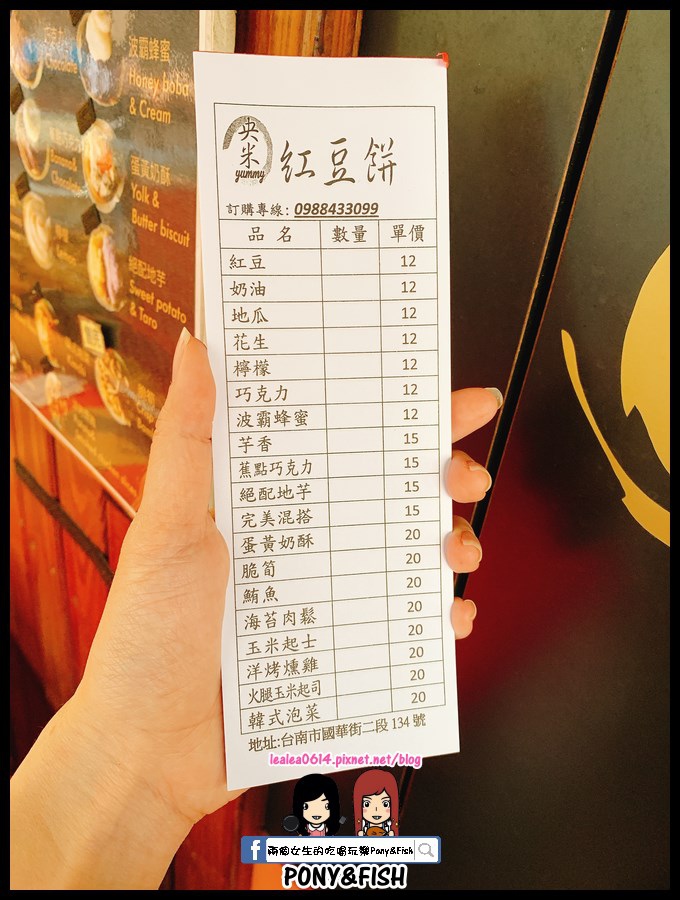 波霸蜂蜜
Honey boba
& Cream
Chocolate
蛋黃奶酥
Yolk &
Butter biscuit
Banana&
Chocolate
絕配地芋
Sweet potato
& Taro
央米
yummy
紅豆餅
訂購專線: 0988433099
品名 數量 單價
紅豆 12
奶油 12
地瓜 12
花生 12
檸檬 12
巧克力 12
波霸蜂蜜 12
芋香 15
蕉點巧克力 15
絕配地芋 15
完美混搭 15
蛋黃奶酥 20
脆筍 20
鮪魚 20
海苔肉鬆 20
玉米起士 20
洋烤燻雞 20
火腿玉米起司 20
韓式泡菜 20
地址:台南市國華街二段 134 號
lealea0614.pixnet.net/blog
f 兩個女生的吃喝玩樂Pony&Fish
PONY&FISH